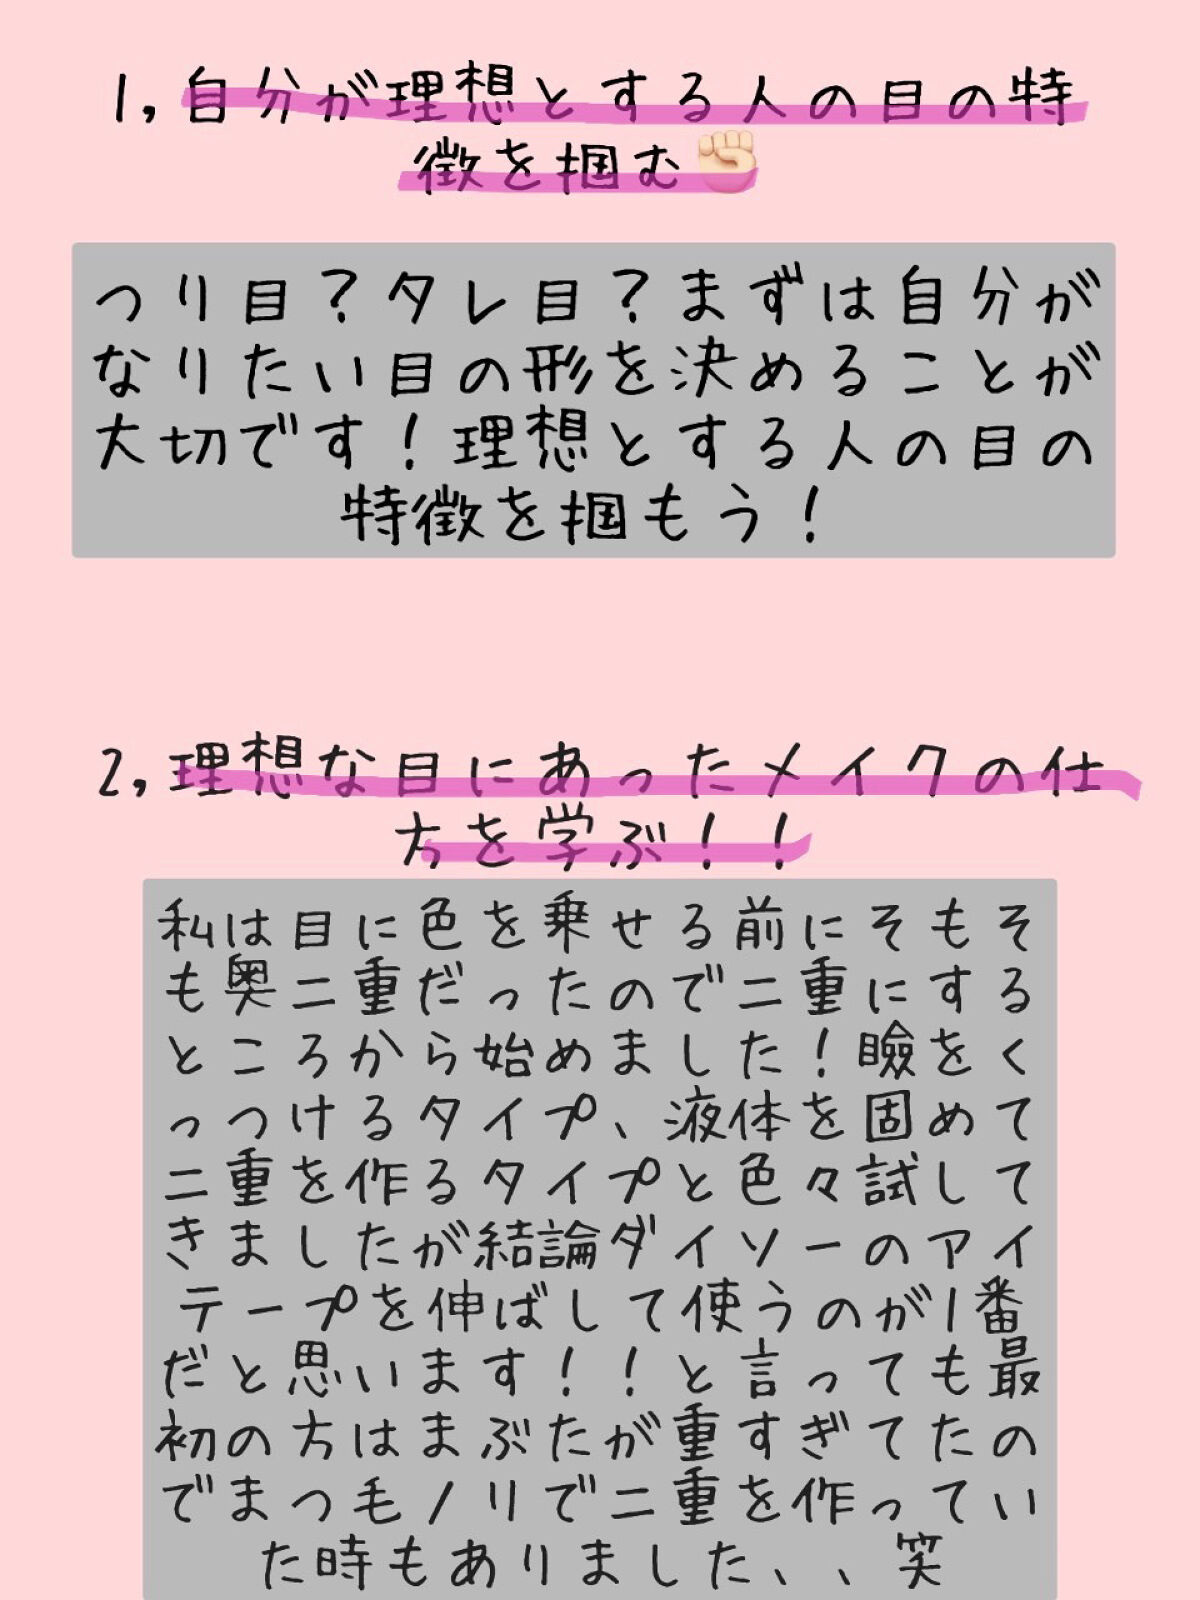 1,自分が理想とする人の目の特
徴を掴む✊🏻
つり目?タレ目?まずは自分が
なりたい目の形を決めることが
大切です!理想とする人の目の
特徴を掴もう!
2,理想な目にあったメイクの仕
方を学ぶ!!
私は目に色を乗せる前にそもそ
も奥二重だったので二重にする
ところから始めました!瞼をく
っつけるタイプ、液体を固めて
二重を作るタイプと色々試して
きましたが結論ダイソーのアイ
テープを伸ばして使うのが1番
だと思います!!と言っても最
初の方はまぶたが重すぎてたの
でまつ毛ノリで二重を作ってい
た時もありました、、笑